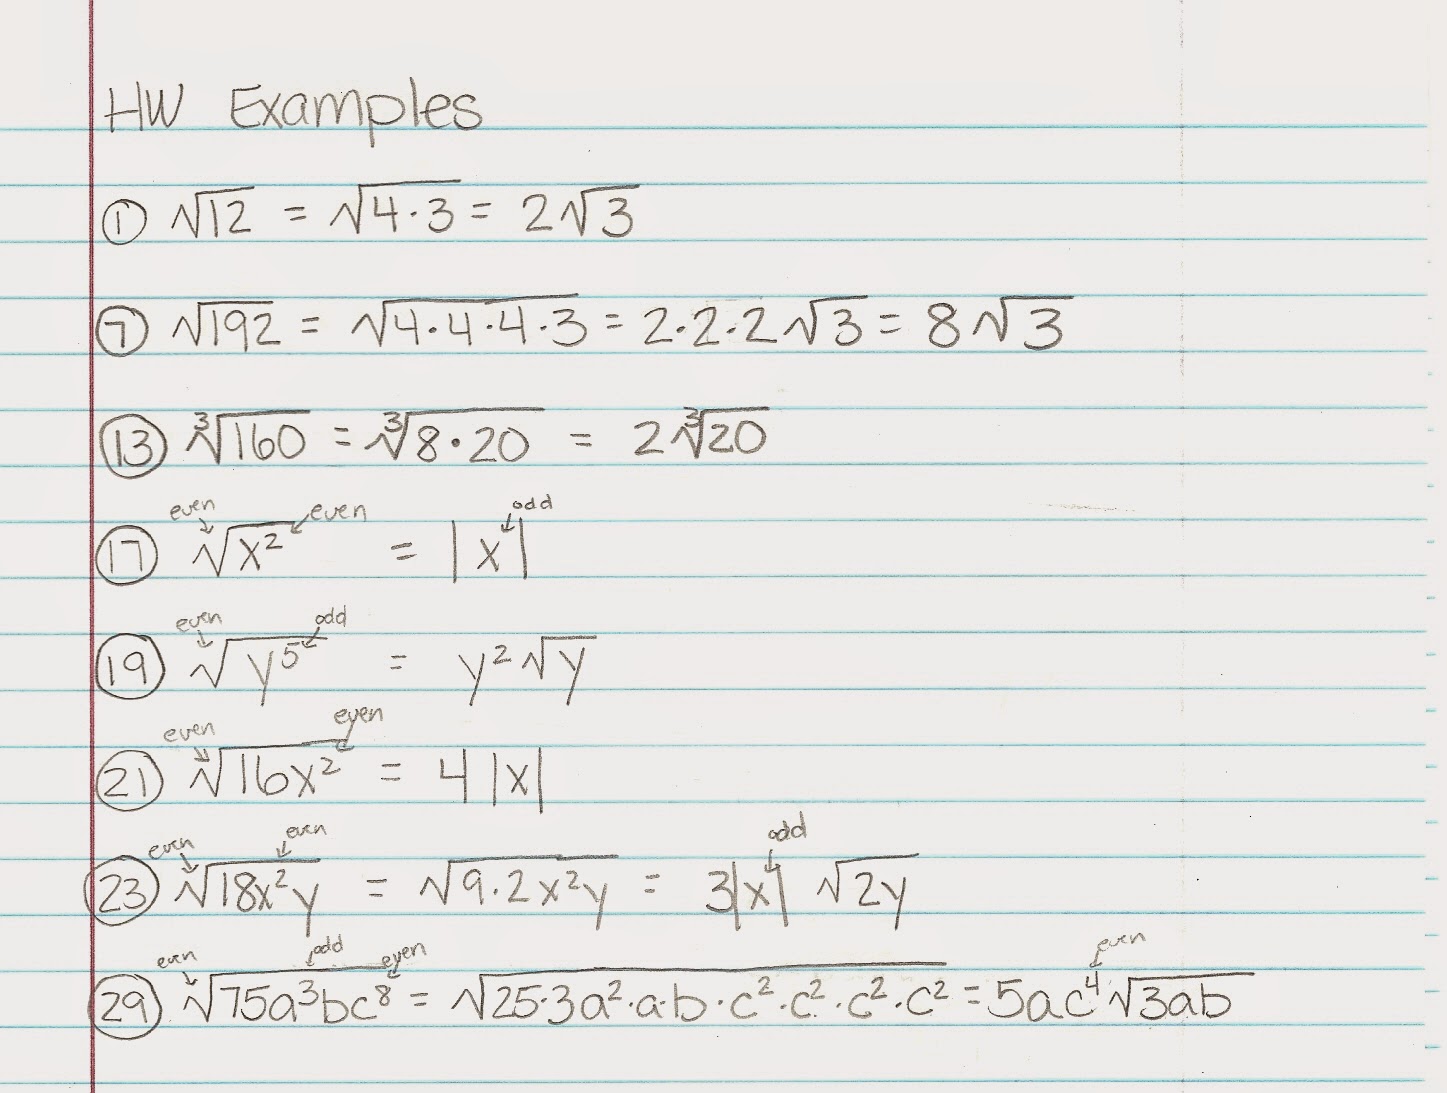 HW Examples
① √12 = √4·3 = 2√3
⑦ √192 = √4·4·4·3 = 2·2·2√3 = 8√3
⑬ ∛160 = ∛8·20 = 2∛20
even even odd
⑰ √x² = |x|
even odd
⑲ √y⁵ = y²√y
even even
㉑ √16x² = 4|x|
even even odd
㉓ √18x²y = √9·2x²y = 3|x| √2y
even odd even even
㉙ √75a³bc⁸ = √25·3a²·a·b·c²·c²·c²·c² = 5ac⁴√3ab